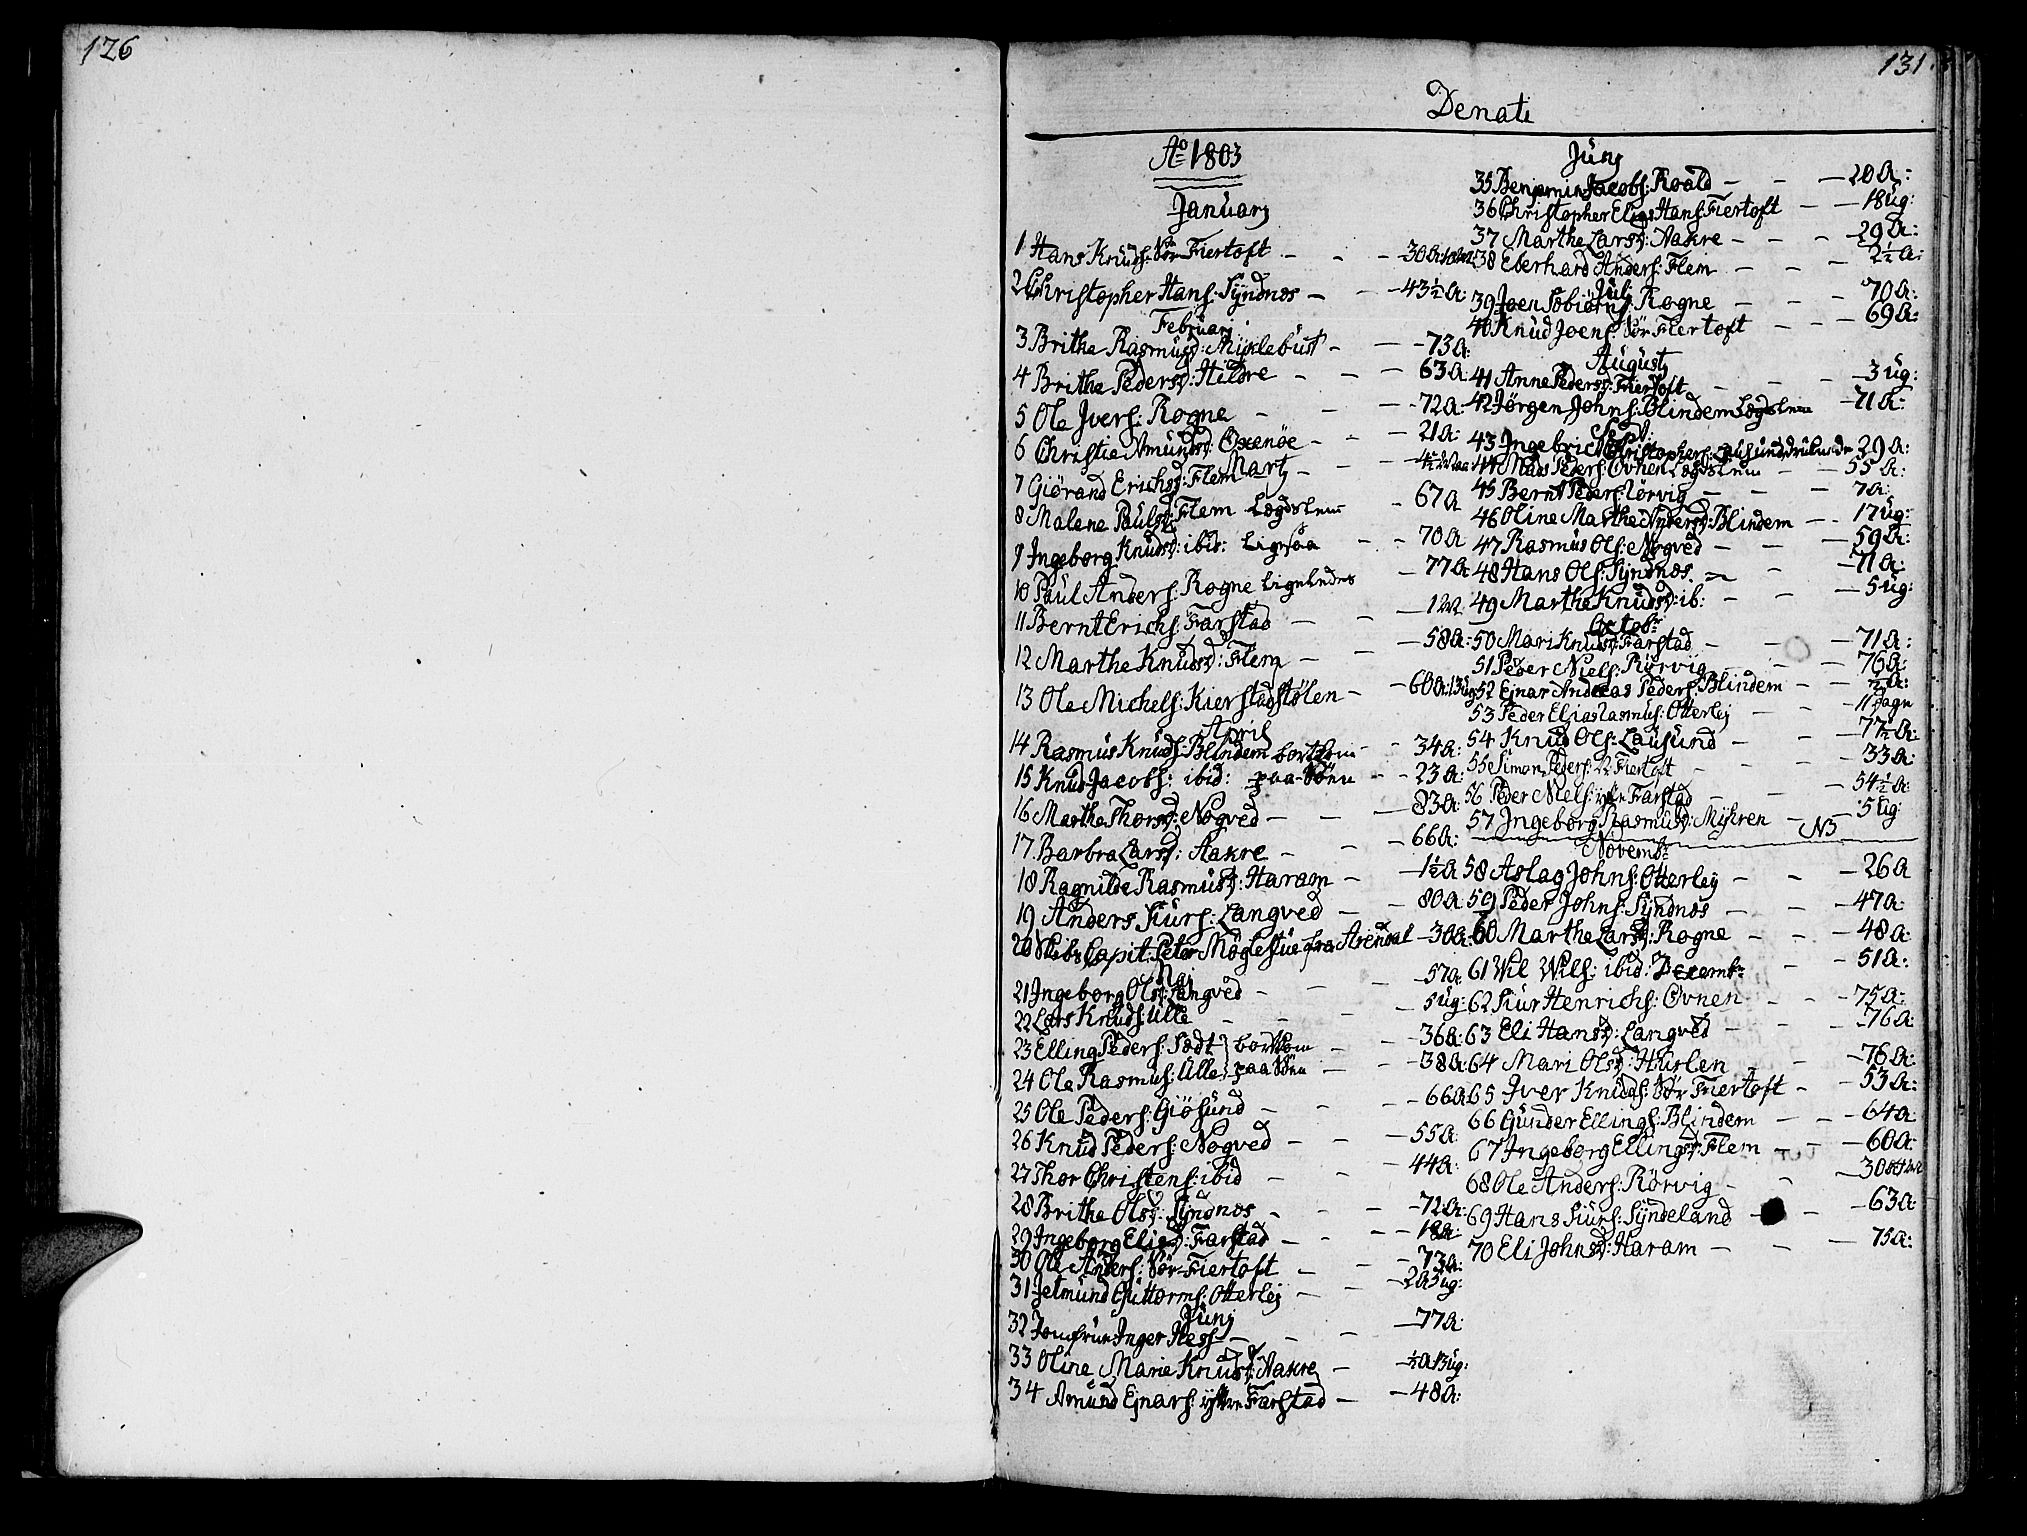 126
131
Denati
Aº 1803
Januarj
1 Hans Knuds: Nör Fiertoft - - - 30 A:
2 Christopher Hans: Syndnøs - - 43½ A:
Februarj
3 Brithe Rasmusd: Myklebust - - 73 A:
4 Brithe Pedersd: Hildre - - - 63 A:
5 Ole Ivers: Rogne - - - 72 A:
6 Christie Amundsd: Oxenøe - - - 21 A:
Martj
7 Giørand Erichsd: Flem -
8 Malene Paulsd: Flem Lægdslem - 67 A
9 Ingeborg Knudsd: ibid: - - 70 A
10 Paul Anders: Rogne - 77 A
11 Bernt Erichs: Farstad - - - 12
12 Marthe Knudsd: Flem - - - 58 A:
13 Ole Michels: Kierstadstølen - - 60 A: 13 ug:
April
14 Rasmus Knuds: Blindem bortkom - - 34 A:
15 Knud Jacobs: ibid: paa Søen - - 23 A:
16 Marthe Thorsd: Nogved - - - 83 A:
17 Barbra Larsd: Aakre - - - 66 A:
18 Ragnilde Rasmusd: Haram - - 1½ A
19 Anders Siurs: Langved - - 80 A:
20 Skibs Capit: Peter Møglestue fra Arendal - 30 A:
Maj
21 Ingeborg Olsd: Langved - - - 57 A:
22 Lars Knuds: Ulle - - - 5 ug:
23 Elling Peders: Sædt bortkom - - 36 A:
24 Ole Rasmus: Ulle paa Søen - - 38 A:
25 Ole Peders: Giøsund - - - 66 A
26 Knud Peders: Nogved - - - 55 A:
27 Thor Christens: ibid - - - 44 A:
28 Brithe Olsd: Syndnøs - - - 72 A:
29 Ingeborg Eliasd: Farstad - - - 18 A:
30 Ole Anders: Sør-Fiertoft - - - 73 A:
31 Jetmund Guttorms: Otterlej - - 2 A 5 ug:
Junj
32 Jomfrue Inger Hess - - - 77 A:
33 Oline Marie Knudsd: Aakre - - ½ A 13 ug:
34 Amund Ejnars: ytre Farstad - - 48 A:
Junj
35 Benjamin Jacobs: Roald - - - 20 A:
36 Christopher Elias Hans: Fiertoft - - 18 ug:
37 Marthe Larsd: Aakre - - - 29 A:
38 Eberhard Anders: Flem - - - 2½ A:
Juli
39 Joen Sebiørns: Rogne - - - 70 A:
40 Knud Joens: Nör Fiertoft - - - 69 A:
Augustj
41 Anne Pedersd: Fiertoft - - - 3 ug:
42 Jørgen Johns: Blindem Lægdslem - 71 A:
Sept:
43 Ingebrict Christophers: Lausund druknede 29 A:
44 Mads Peders: Ovnen Lægdslem - - 55 A:
45 Bernt Peders: Rörvig - - - 7 A:
46 Oline Marthe Andersd: Blindem - - 17 ug:
47 Rasmus Ols: Nogved - - - 59 A:
48 Hans Ols: Syndnøs - - 71 A:
49 Marthe Knudsd: ib: - - - 5 ug:
Octobr
50 Mari Knudsd: Farstad - - - 71 A:
51 Peder Niels: Rörvig - - - 76 A:
52 Ejnar Andreas Peders: Blindem - - ½ A:
53 Peder Elias Rasmus: Otterlej - - 11 Dage
54 Knud Ols: Lausund - - 77½ A:
55 Simon Peders: Fiertoft - - 33 A:
56 Peder Niels: ytre Farstad - - - 54½ A:
57 Ingeborg Rasmusd: Myhren - - 5 ug:
NB
Novembr
58 Aslag Johns: Otterlej - - - 26 A
59 Peder Johns: Syndnøs - - - 47 A:
60 Marthe Larsd: Rogne - - - 48 A:
61 Wil Wils: ibid: - - 51 A:
Decembr
62 Siur Henrichs: Ovnen - - - 75 A:
63 Eli Hansd: Langved - - - 76 A:
64 Mari Olsd: Hurlen - - 76 A:
65 Iver Knuds: Nör Fiertoft - - 53 A:
66 Gunder Ellings: Blindem - - - 64 A:
67 Ingeborg Ellingsd: Flem - - - 60 A:
68 Ole Anders: Rörvig - - - 30
69 Hans Siurs: Syndeland - - 63 A:
70 Eli Johnsd: Haram - - - 75 A: